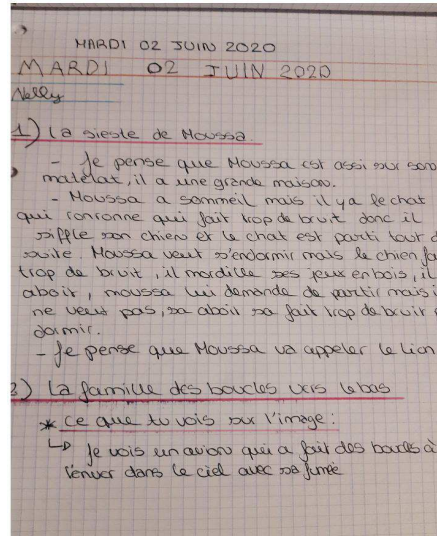 MARDI 02 JUIN 2020
MARDI 02 JUIN 2020
Nelly
1) La sieste de Moussa
- Je pense que Moussa est assi sur son
matelat, il a une grande maison.
- Moussa a sommeil mais il y a le chat
qui ronronne qui fait trop de bruit donc il
siffle son chien et le chat est parti tout d
suite. Moussa veut s'endormir mais le chien fa
trop de bruit, il mordille ses jeux en bois, il
aboit, moussa lui demande de partir mais i
ne veut pas, sa aboit sa fait trop de bruit
dormir.
- Je pense que Moussa va appeler le Lion
2) La famille des boucles vers le bas
* ce que tu vois sur l'image :
↳ Je vois un avion qui a fait des boucles à
l'enver dans le ciel avec sa fumée